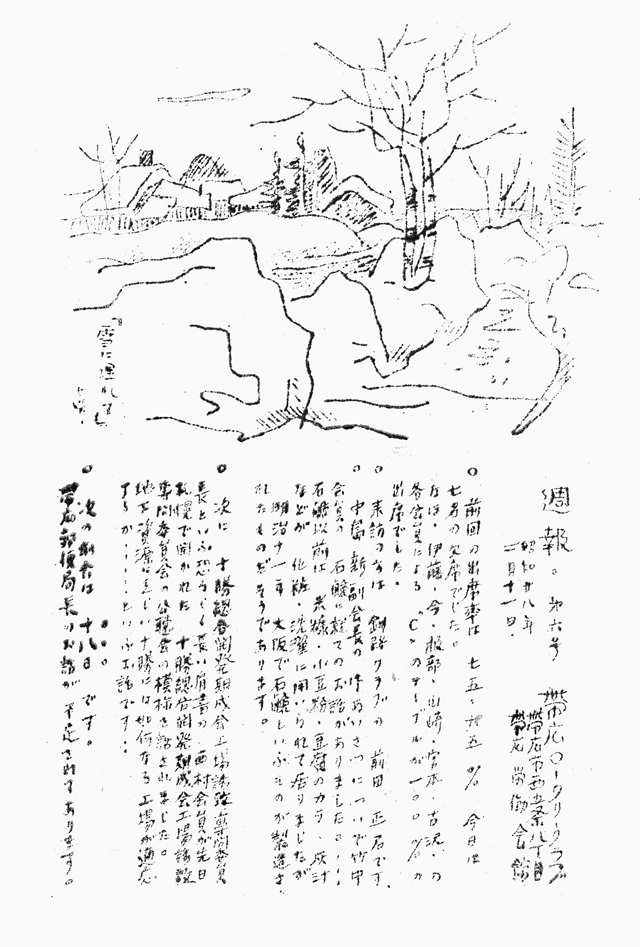 『雪に埋れて』
週報 第六号
昭和廿八年
二月十一日
帯広ロータリークラブ
帯広市西五条八丁目
帯広労働会館
○前回の出席率は 七五・廿五% 今日は
七名の欠席でした。
なほ、伊藤・今・服部・山崎・宮本・古沢・の
各会員による "C"のテーブルが一〇〇%の
出席でした。
○来訪の方は 釧路クラブの 前田 正石です、
○中島 新副会長の 御あいさつについで竹中
会員の 石鹸に就てのお話がありました。
石鹸以前は 糸瓜・小豆粉・豆腐のカラ・灰汁
などが 化粧・洗濯に用いられて居りましたが
明治十一年 大阪で石鹸といふものが製造さ
れたものだそうであります。
○次に 十勝総合開発期成会工場誘致専門委員
長といふ恐ろしく長い肩書の 西村会員が先日
札幌で開かれた 十勝総合開発期成会工場誘致
専門委員会の公聴会の模様を話されました。
地下資源に乏しい十勝には如何なる工場が適応
するか・・・・といふお話です・・
○次の例会は 十八日 です。
帯広郵便局長のお話が 予定されてあります。